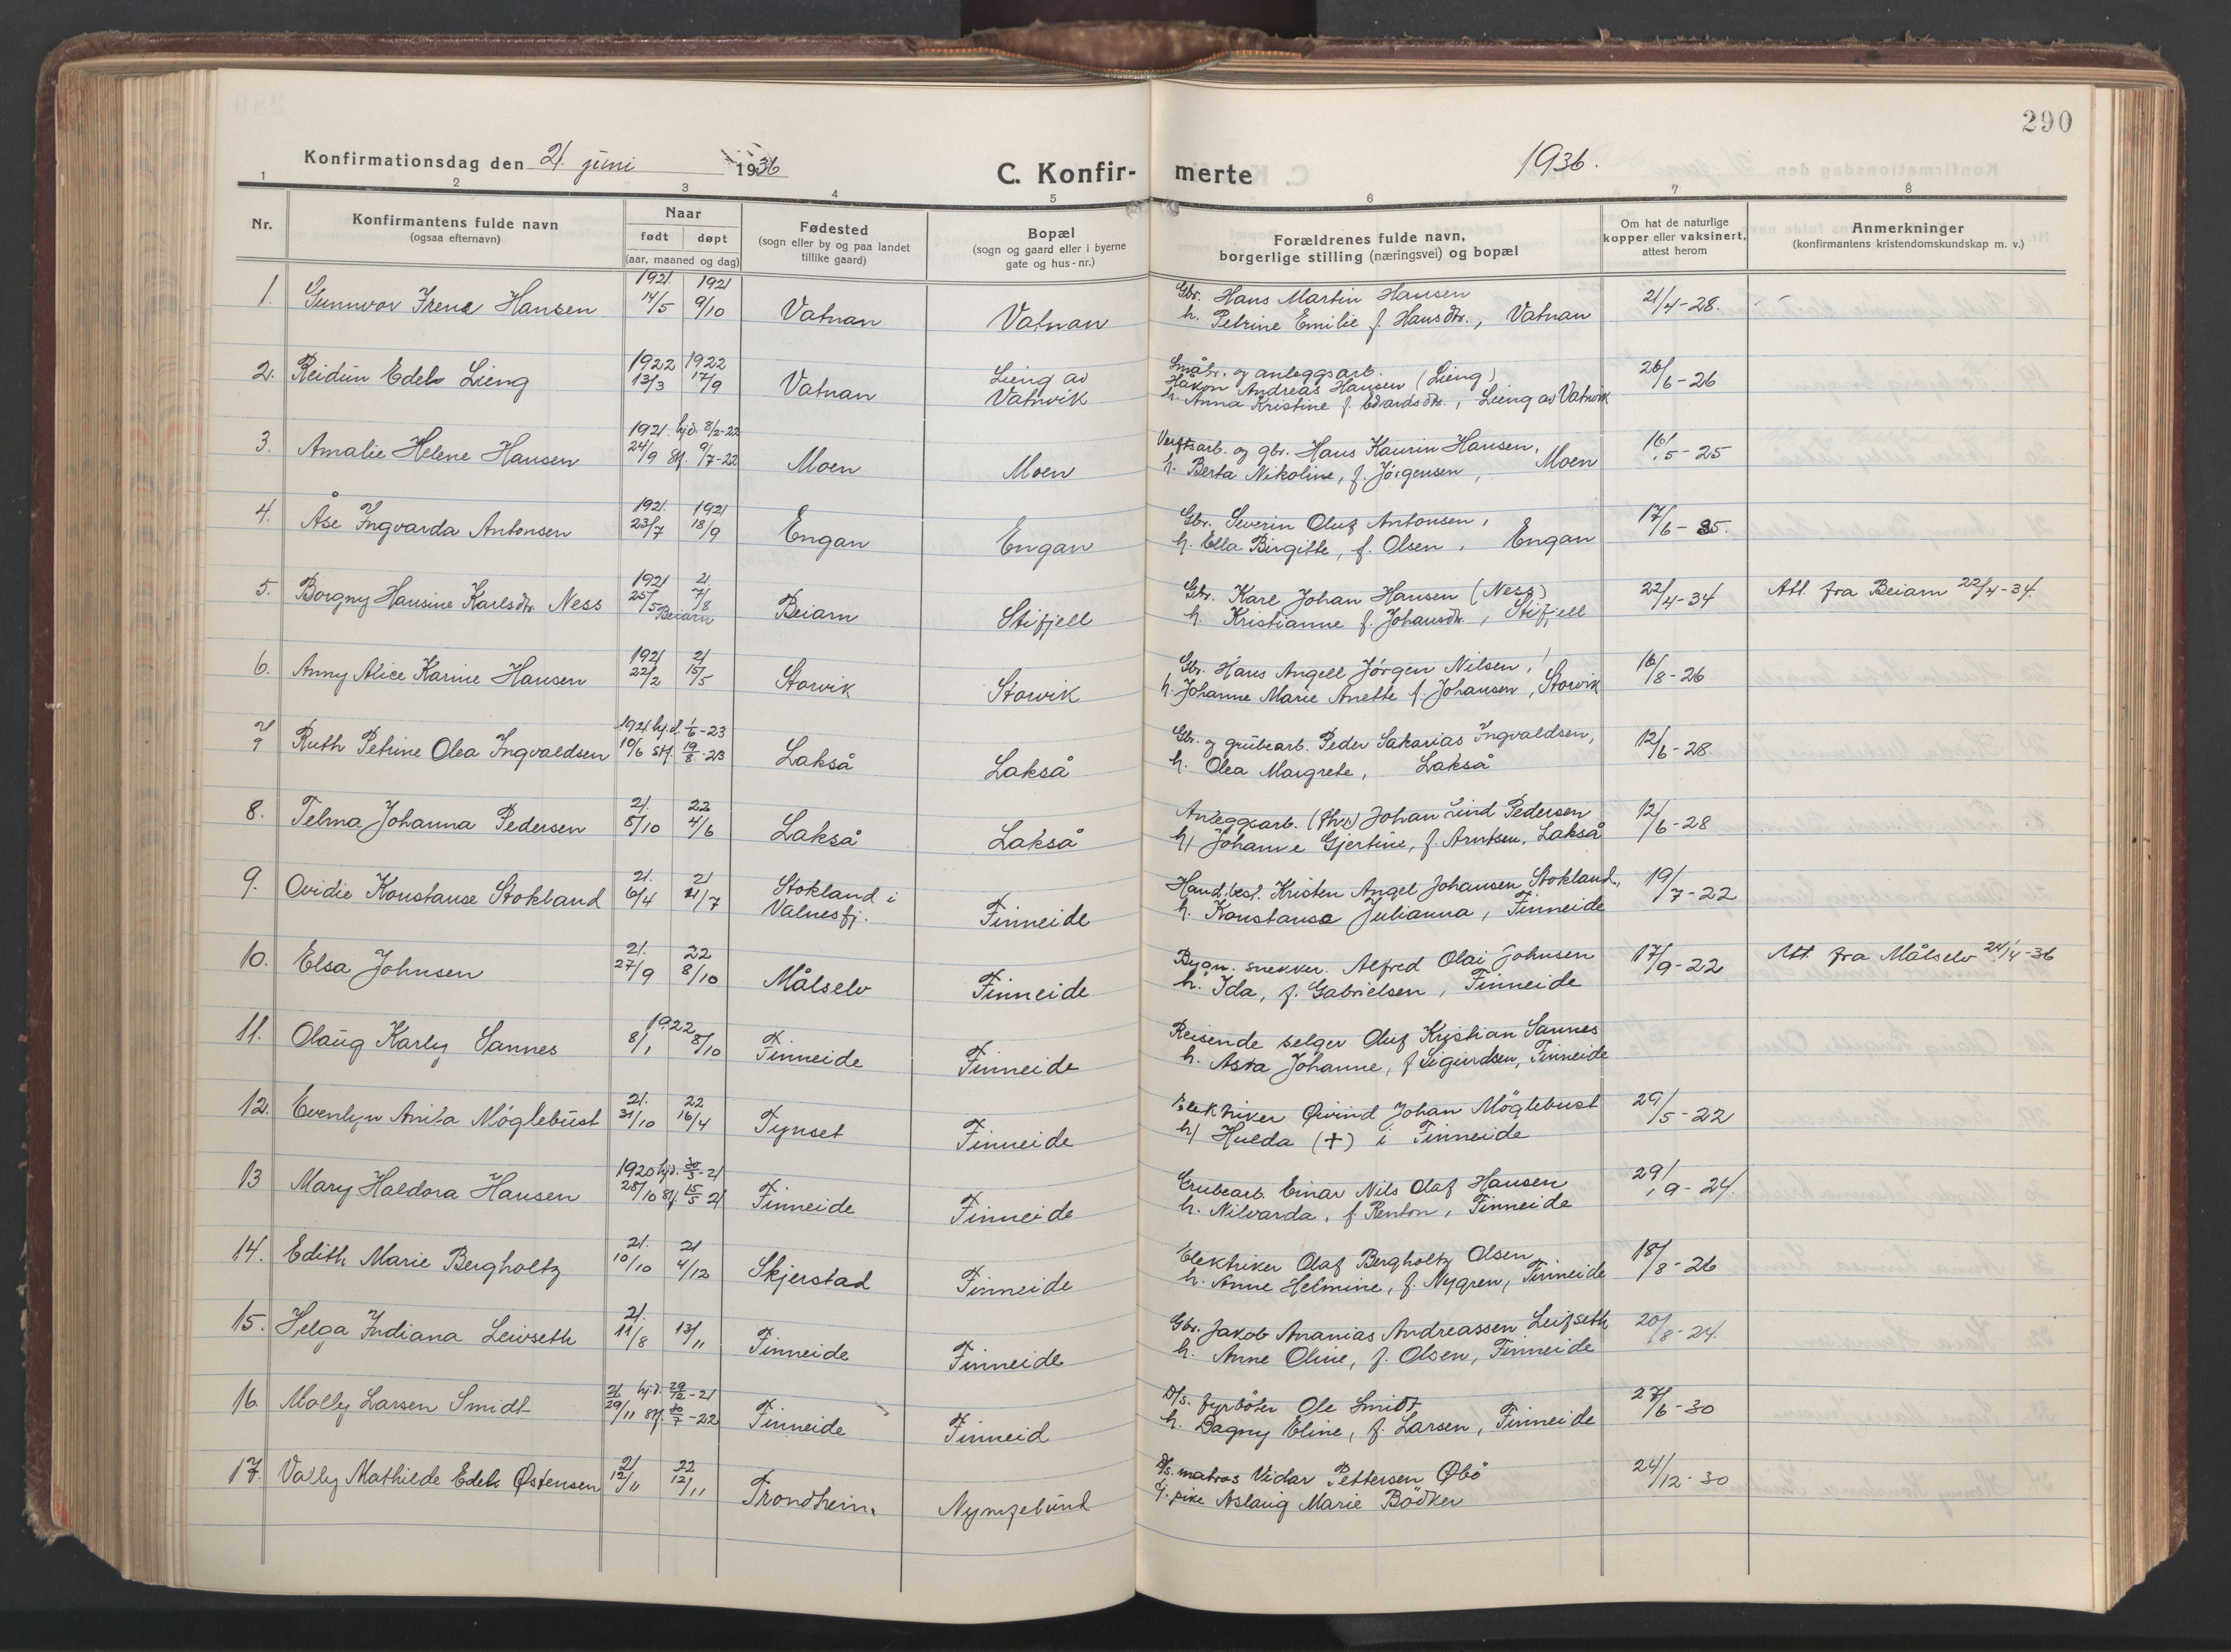 290
Konfirmationsdag den 21. juni 1936
C. Konfir-
merte
1936.
1 2 3 4 5 6 7 8
Nr.
Konfirmantens fulde navn
(ogsaa efternavn)
Naar
født døpt
(aar, maaned og dag)
Fødested
(sogn eller by og paa landet
tillike gaard)
Bopæl
(sogn og gaard eller i byerne
gate og hus-nr.)
Forældrenes fulde navn,
borgerlige stilling (næringsvei) og bopæl
Om hat de naturlige
kopper eller vaksinert,
attest herom
Anmerkninger
(konfirmantens kristendomskundskap m. v.)
1. Gunnvor Irene Hansen 1921. 14/5 1921 9/10 Vatnan Vatnan
Gbr. Hans Martin Hansen
h. Petrine Emilie f. Hansdtr., Vatnan
21/4-28.
2. Reidun Edel Lieng 1922 13/3 1922 17/9 Vatnan
Lieng av
Vatnvik
Småbr. og anleggsarb.
Håkon Andreas Hansen (Lieng)
h. Anna Kristine f. Edvardsdtr., Lieng av Vatnvik
26/6-26
3. Amalie Helene Hansen 1921. 24/9 hjd. 8/2-22 stf. 9/7-22 Moen Moen
Verftsarb. og gbr. Hans Kaurin Hansen,
h. Berta Nikoline, f. Jörgensen, Moen
16/5-25
4. Åse Ingvarda Antonsen 1921. 23/7 1921 18/9 Engan Engan
Gbr. Severin Oluf Antonsen,
h. Ella Birgitte, f. Olsen, Engan
17/6-35.
5. Borgny Hansine Karlsdtr. Ness 1921 25/5 21. 7/8 Beiarn Beiarn Stifjell
Gbr. Karl Johan Hansen (Ness)
h. Kristianne f. Johansdtr., Stifjell
22/4-34
Att. fra Beiarn 22/4-34.
6. Anny Alice Karine Hansen 1921 22/2 21 15/5 Storvik Storvik
Gbr. Hans Angell Jörgen Nilsen,
h. Johanne Marie Anette f. Johansen, Storvik
16/8-26
7 Ruth Petrine Olea Ingvaldsen 1921 10/6 hj.d. 1/6-23 stf. 19/8-23 Lakså Lakså
Gbr. og grubearb. Peder Sakarias Ingvaldsen,
h. Olea Margrete, Lakså
12/6-28.
8. Telma Johanna Pedersen 21. 5/10 22 4/6 Lakså Lakså
Anleggsarb. Johan Lind Pedersen
h) Johanne Gjertine, f. Arntsen, Lakså
12/6-28
9. Ovidie Konstanse Stokland 21. 6/4 21 /7
Stokland i
Valnesfj.
Finneide
Hand.best. Kristen Angel Johansen Stokland,
h. Konstanse Julianna, Finneide
19/7-22
10. Elsa Johnsen 21. 27/9 22 8/10 Målselv Finneide
Bygn. snekker. Alfred Olai Johnsen
h. Ida, f. Gabrielsen, Finneide
17/9-22
Att. fra Målselv 24/4-36
11. Olaug Karly Sannes 1922 8/1 8/10 Finneide Finneide
Reisende selger Oluf Kristian Sannes
h. Asta Johanne, f Sigurdsen, Finneide
12. Evenlyn Anita Möglebust 21. 31/10 22 16/4 Tynset Finneide
Elektriker Øivind Johan Möglebust
h) Hulda (+) i Finneide
29/5-22
13 Mary Haldora Hansen 1920 28/10 hjd. 30/3-21 stf. 15/5 21 Finneide Finneide
Grubearb. Einar Nils Olaf Hansen
h. Nilvarda, f Renton, Finneide
29/9-24.
14. Edith Marie Bergholtz 21. 10/10 21 4/12 Skjerstad Finneide
Elektriker Olaf Bergholtz Olsen
h. Anne Helmine, f. Nygren, Finneide
18/8-26
15. Helga Indiana Leivseth 21. 11/8 13/11 Finneide Finneide
Gbr. Jakob Ananias Andreassen Leifseth
h. Anne Oline, f. Olsen, Finneide
20/8-24.
16 Molly Larsen Smidt 21 29/11 hj.d. 29/12-21 stf. 30/7-22 Finneide Finneid
D/s. fyrböter Ole Smidt
h. Dagny Eline, f. Larsen, Finneide
27/6-30
17. Vally Mathilde Edel Østensen 21 12/11 22 12/11 Trondheim
D/s. matros Vidar Pettersen Øbö
f. pike Aslaug Marie Bödker
24/12-30